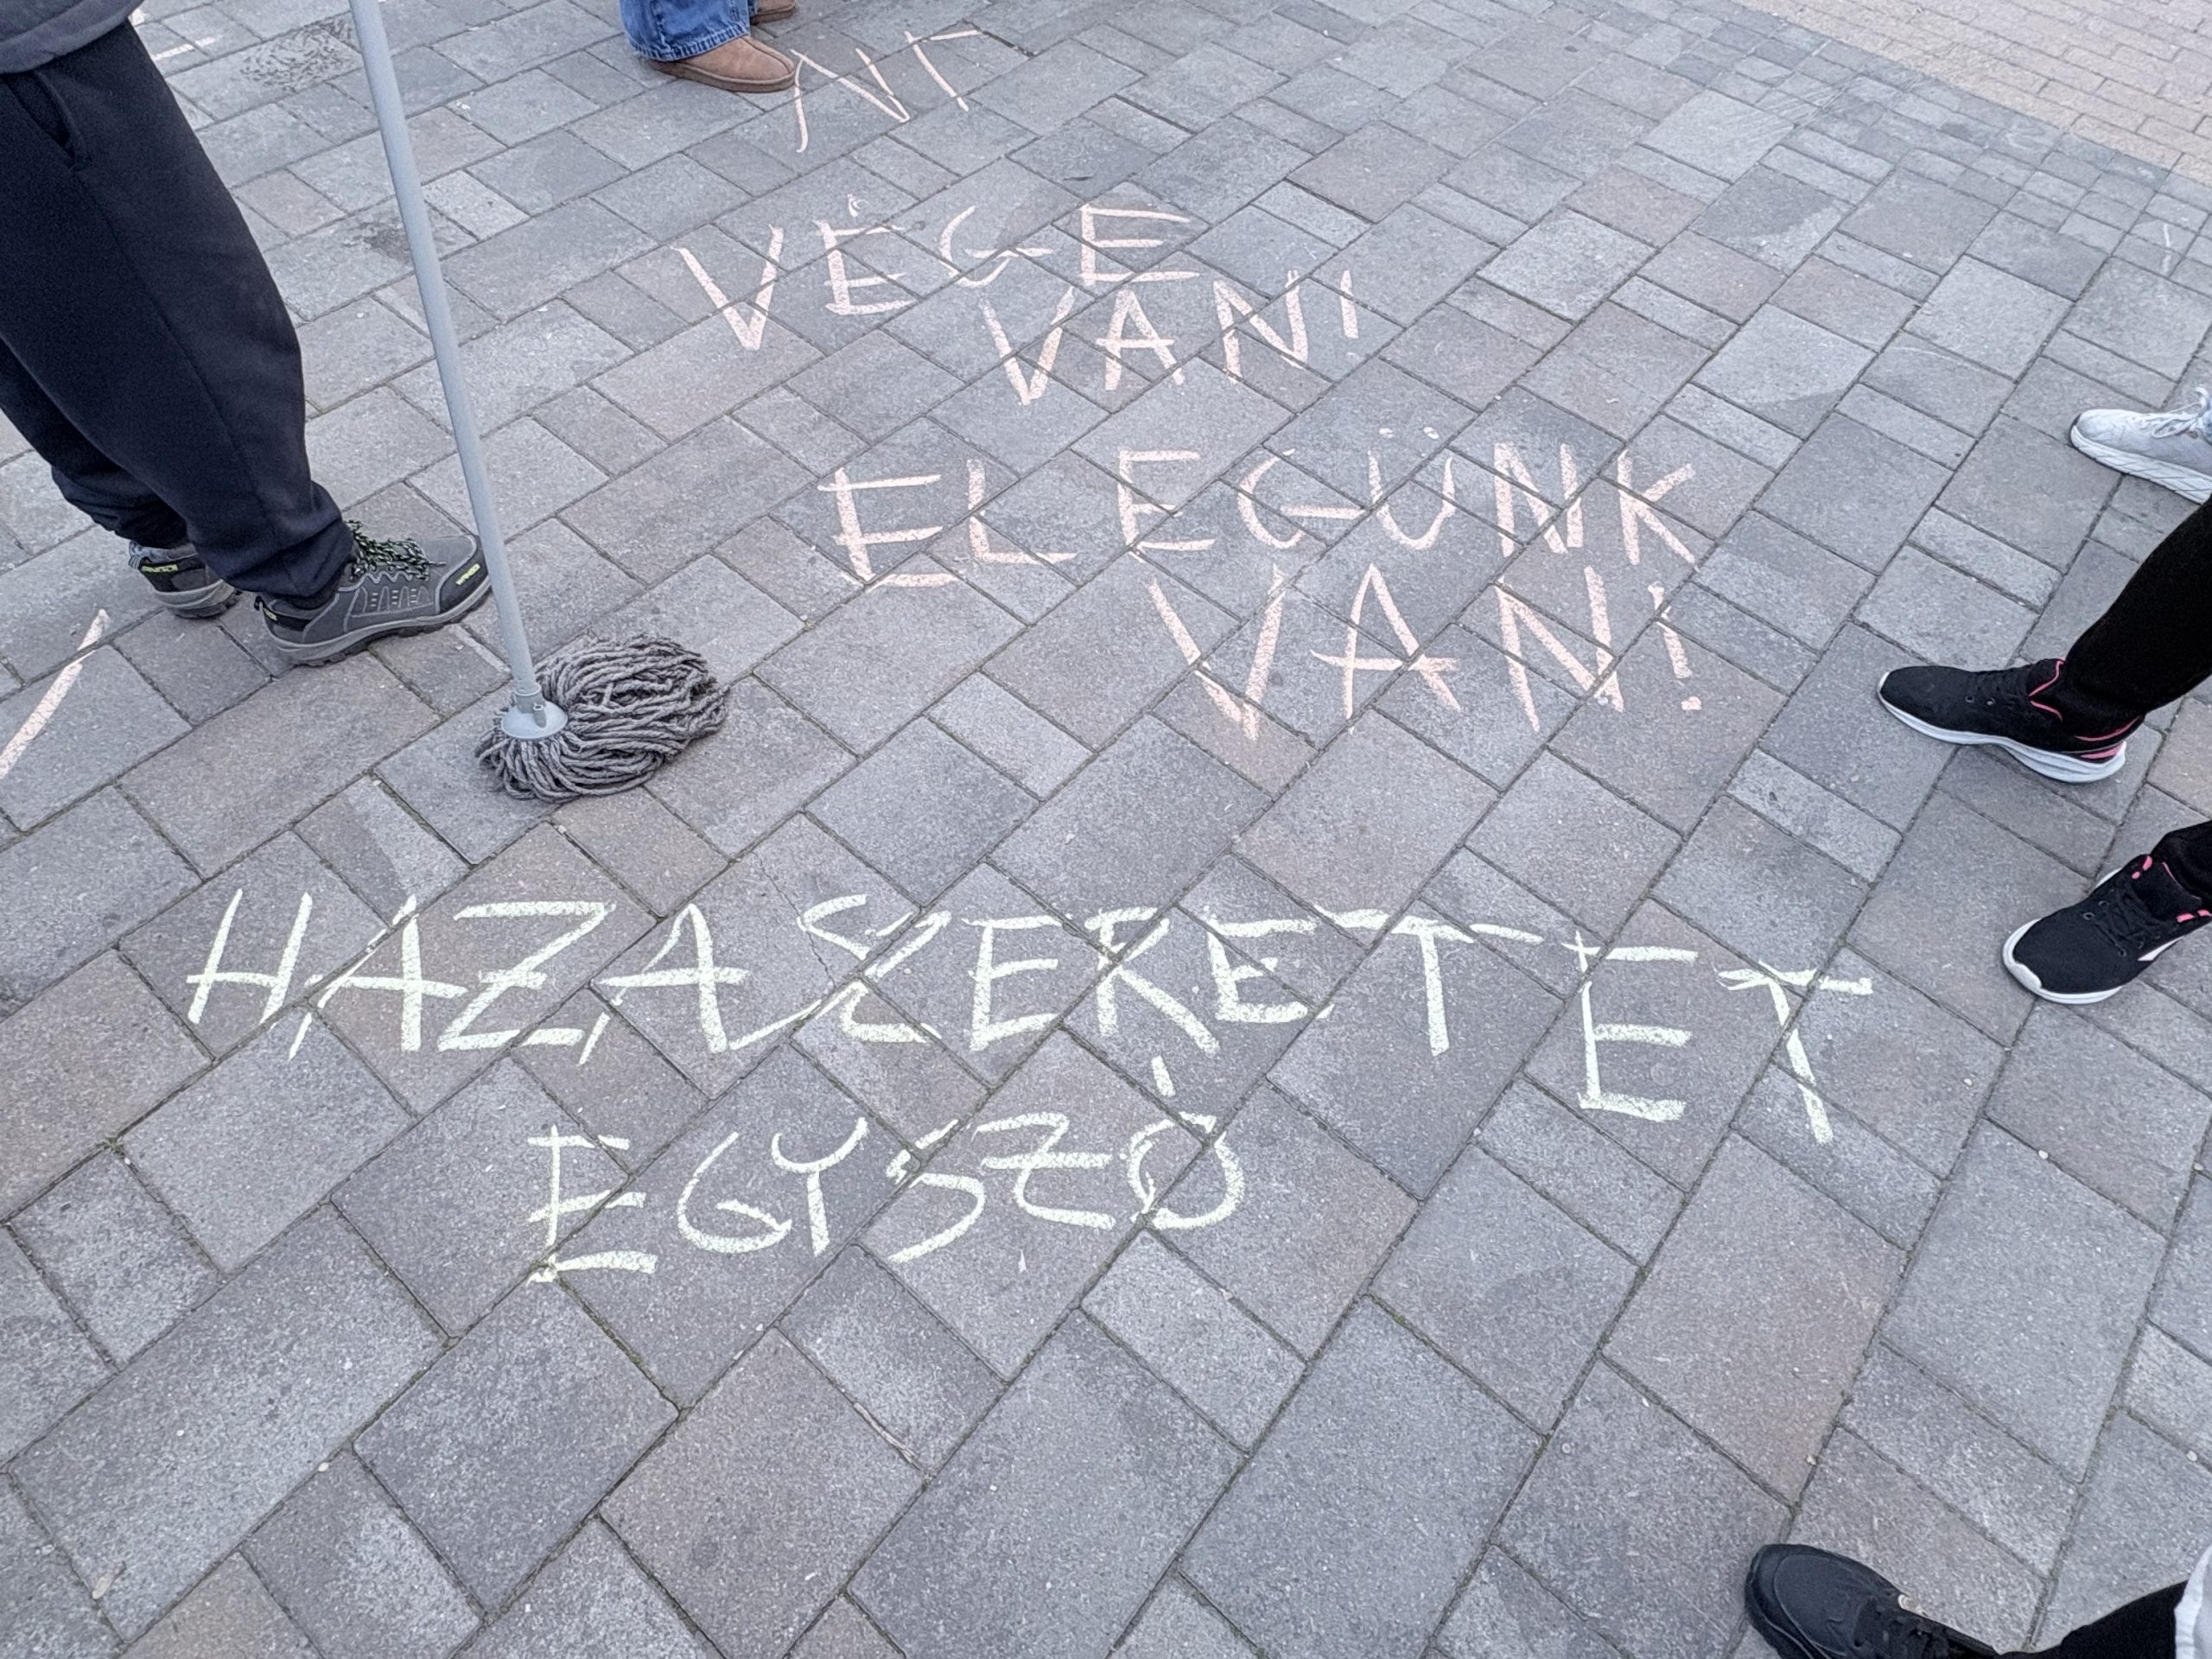 VÉGE
VAN!
ELEGÜNK
VAN!
HAZASZERETETET
EGYSZŐ